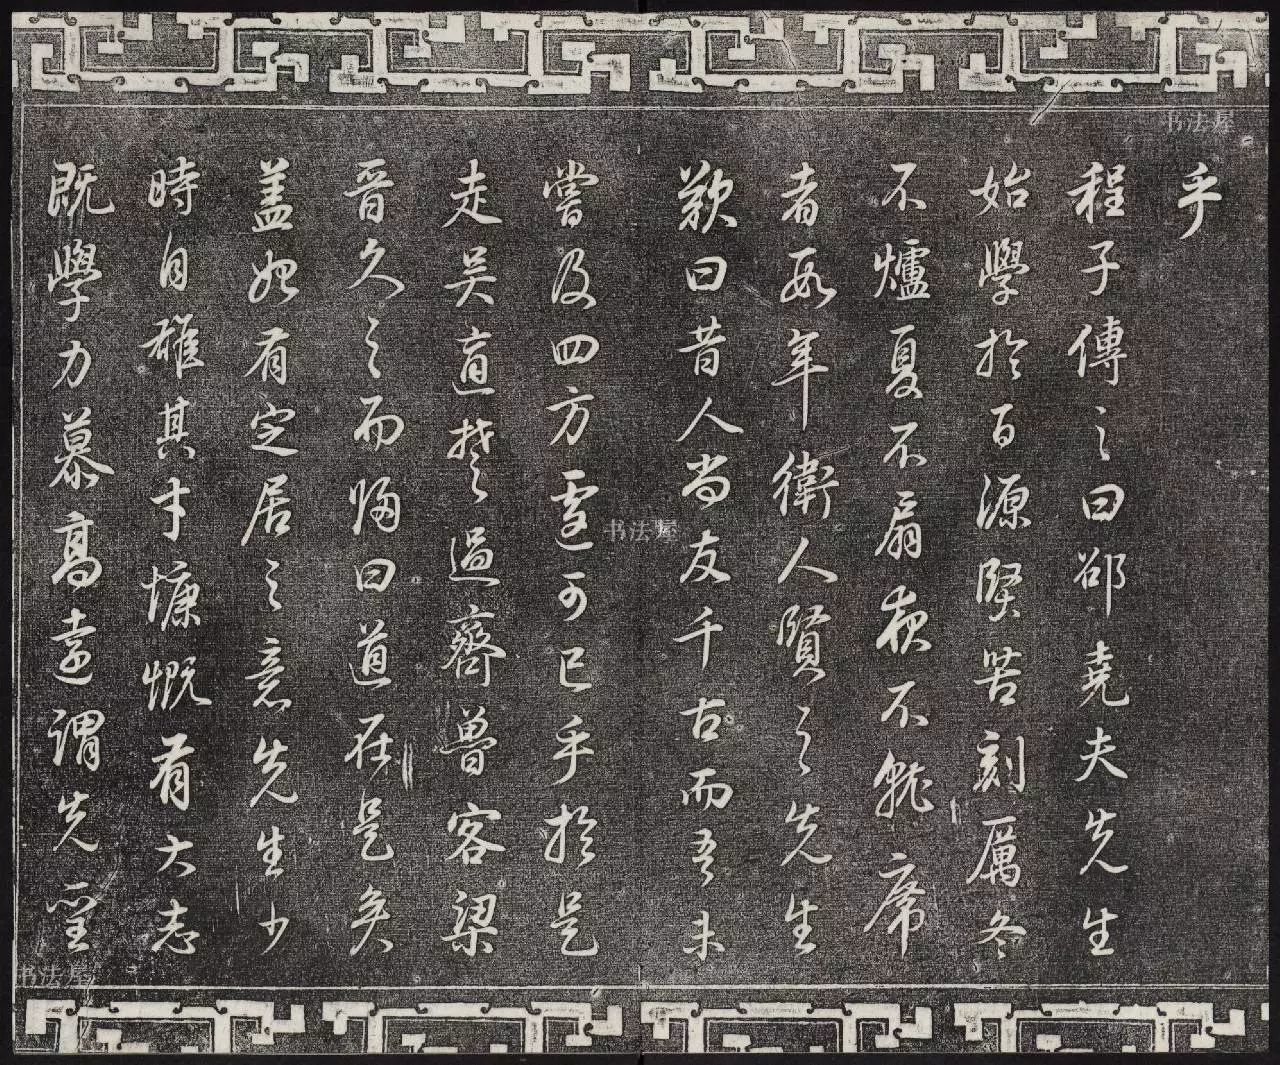 乎
程子傳之曰邵堯夫先生
始學於百源堅苦刻厲冬
不爐夏不扇夜不就席
者數年衛人賢之先生
歎曰昔人尚友千古而吾未
嘗及四方遽可已乎於是
走吳適楚過齊魯客梁
晉久之而歸曰道在是矣
蓋始有定居之意先生少
時自雄其才慷慨有大志
既學力慕高遠謂先王
书法屋
书法屋
书法屋